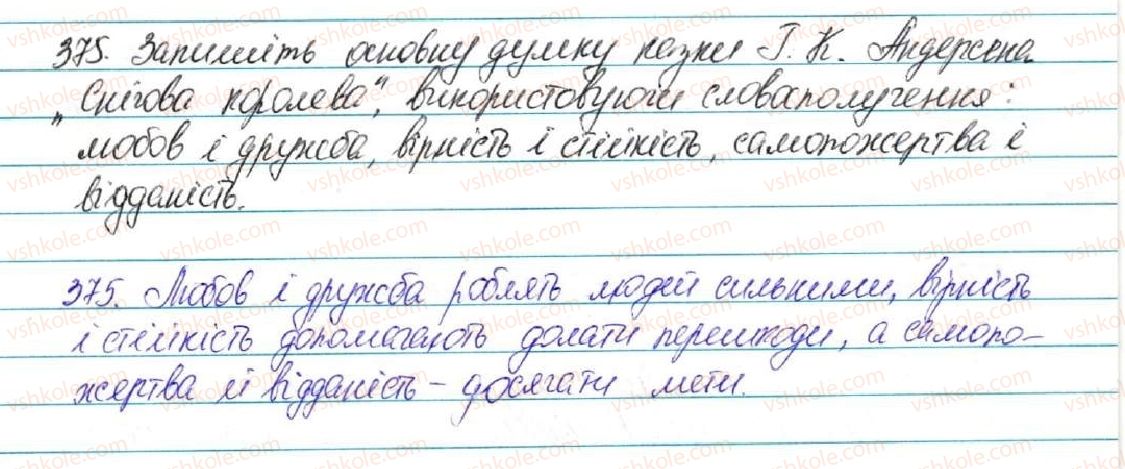 375. Запишіть основну думку казки Г. К. Андерсена
„Снігова королева", використовуючи словасполучення:
любов і дружба, вірність і стійкість, самопожертва і
відданість.
375. Любов і дружба роблять людей сильними, вірність
і стійкість допомагають долати перешкоди, а самопо-
жертва й відданість – досягати мети.